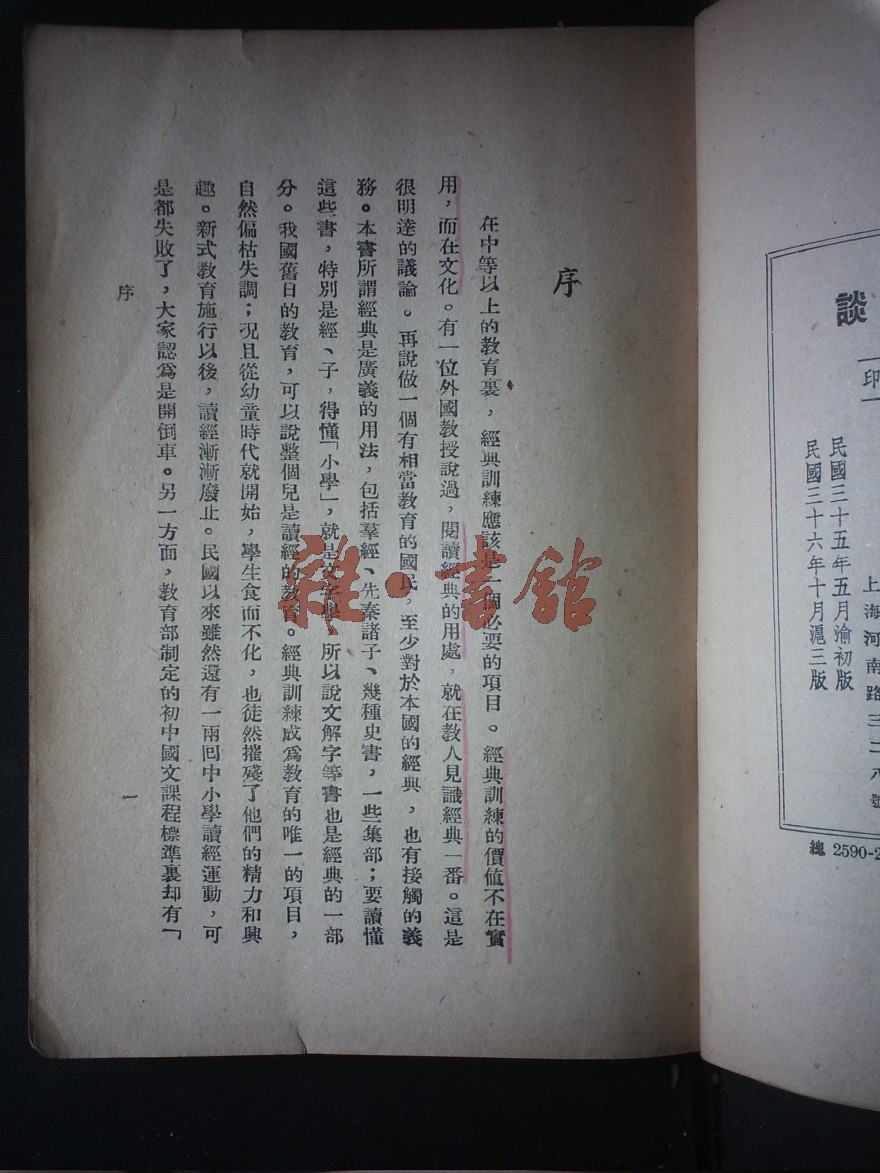 談
印
民國三十五年五月渝初版
民國三十六年十月滬三版
上海河南路三二八號
總 2590-2
序
在中等以上的教育裏，經典訓練應該是一個必要的項目。經典訓練的價值不在實
用，而在文化。有一位外國教授說過，閱讀經典的用處，就在教人見識經典一番。這是
很明達的議論。再說做一個有相當教育的國民，至少對於本國的經典，也有接觸的義
務。本書所謂經典是廣義的用法，包括羣經、先秦諸子、幾種史書，一些集部；要讀懂
這些書，特別是經、子，得懂「小學」，就是文字學，所以說文解字等書也是經典的一部
分。我國舊日的教育，可以說整個兒是讀經的教育。經典訓練成爲教育的唯一的項目，
自然偏枯失調；況且從幼童時代就開始，學生食而不化，也徒然摧殘了他們的精力和興
趣。新式教育施行以後，讀經漸漸廢止。民國以來雖然還有一兩回中小學讀經運動，可
是都失敗了，大家認爲是開倒車。另一方面，教育部制定的初中國文課程標準裏却有「
序
一
雜·書館